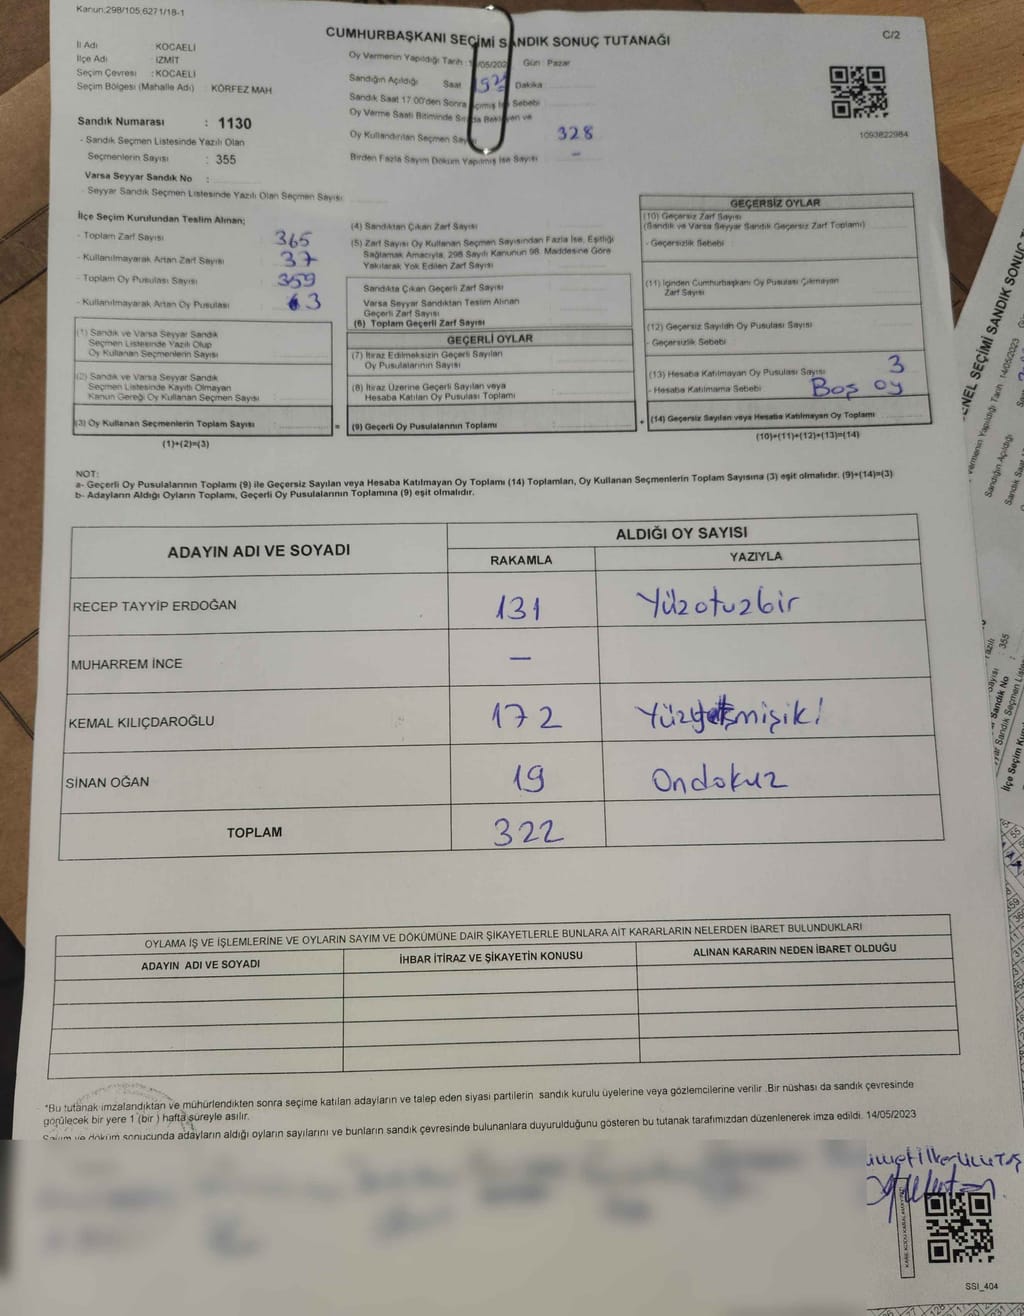 Kanun;298/105,6271/18-1
CUMHURBAŞKANI SEÇİMİ SANDIK SONUÇ TUTANAĞI
C/2
İl Adı : KOCAELİ
İlçe Adı : İZMİT
Seçim Çevresi : KOCAELİ
Seçim Bölgesi (Mahalle Adı) : KÖRFEZ MAH
Sandık Numarası : 1130
- Sandık Seçmen Listesinde Yazılı Olan
Seçmenlerin Sayısı : 355
Varsa Seyyar Sandık No :
- Seyyar Sandık Seçmen Listesinde Yazılı Olan Seçmen Sayısı:
Oy Vermenin Yapıldığı Tarih : /05/202 Gün : Pazar
Sandığın Açıldığı Saat Dakika
Sandık Saat 17:00'den Sonra Sebebi
Oy Verme Saati Bitiminde ve
Oy Kullandırılan Seçmen 328
Birden Fazla Sayım Döküm Yapılmış İse Sayısı –
1093822984
İlçe Seçim Kurulundan Teslim Alınan;
- Toplam Zarf Sayısı 365
- Kullanılmayarak Artan Zarf Sayısı : 37
- Toplam Oy Pusulası Sayısı : 359
- Kullanılmayarak Artan Oy Pusulası : 3
(1) Sandık ve Varsa Seyyar Sandık
Seçmen Listesinde Yazılı Olup
Oy Kullanan Seçmenlerin Sayısı
(2) Sandık ve Varsa Seyyar Sandık
Seçmen Listesinde Kayıtlı Olmayan
Kanun Gereği Oy Kullanan Seçmen Sayısı
(3) Oy Kullanan Seçmenlerin Toplam Sayısı =
(1)+(2)=(3)
(4) Sandıktan Çıkan Zarf Sayısı
(5) Zarf Sayısı Oy Kullanan Seçmen Sayısından Fazla İse, Eşitliği
Sağlamak Amacıyla, 298 Sayılı Kanunun 98. Maddesine Göre
Yakılarak Yok Edilen Zarf Sayısı
Sandıkta Çıkan Geçerli Zarf Sayısı
Varsa Seyyar Sandıktan Teslim Alınan
Geçerli Zarf Sayısı
(6) Toplam Geçerli Zarf Sayısı
GEÇERLİ OYLAR
(7) İtiraz Edilmeksizin Geçerli Sayılan
Oy Pusulasının Sayısı
(8) İtiraz Üzerine Geçerli Sayılan veya
Hesaba Katılan Oy Pusulası Toplamı
(9) Geçerli Oy Pusulalarının Toplamı +
GEÇERSİZ OYLAR
(10) Geçersiz Zarf Sayısı
(Sandık ve Varsa Seyyar Sandık Geçersiz Zarf Toplamı)
- Geçersizlik Sebebi
(11) İçinden Cumhurbaşkanı Oy Pusulası Çıkmayan
Zarf Sayısı
(12) Geçersiz Sayılan Oy Pusulası Sayısı
- Geçersizlik Sebebi
(13) Hesaba Katılmayan Oy Pusulası Sayısı 3
- Hesaba Katılmama Sebebi Boş oy
(14) Geçersiz Sayılan veya Hesaba Katılmayan Oy Toplamı
(10)+(11)+(12)+(13)=(14)
NOT:
a- Geçerli Oy Pusulalarının Toplamı (9) ile Geçersiz Sayılan veya Hesaba Katılmayan Oy Toplamı (14) Toplamları, Oy Kullanan Seçmenlerin Toplam Sayısına (3) eşit olmalıdır. (9)+(14)=(3)
b- Adayların Aldığı Oyların Toplamı, Geçerli Oy Pusulalarının Toplamına (9) eşit olmalıdır.
ADAYIN ADI VE SOYADI
ALDIĞI OY SAYISI
RAKAMLA YAZIYLA
RECEP TAYYİP ERDOĞAN 131 Yüzotuzbir
MUHARREM İNCE —
KEMAL KILIÇDAROĞLU 172 Yüzyetmişiki
SİNAN OĞAN 19 Ondokuz
TOPLAM 322
OYLAMA İŞ VE İŞLEMLERİNE VE OYLARIN SAYIM VE DÖKÜMÜNE DAİR ŞİKAYETLERLE BUNLARA AİT KARARLARIN NELERDEN İBARET BULUNDUKLARI
ADAYIN ADI VE SOYADI İHBAR İTİRAZ VE ŞİKAYETİN KONUSU ALINAN KARARIN NEDEN İBARET OLDUĞU
*Bu tutanak imzalandıktan ve mühürlendikten sonra seçime katılan adayların ve talep eden siyasi partilerin sandık kurulu üyelerine veya gözlemcilerine verilir .Bir nüshası da sandık çevresinde
görülecek bir yere 1 (bir ) hafta süreyle asılır.
Sayım ve döküm sonucunda adayların aldığı oyların sayılarını ve bunların sandık çevresinde bulunanlara duyurulduğunu gösteren bu tutanak tarafımızdan düzenlenerek imza edildi. 14/05/2023
SSI_404